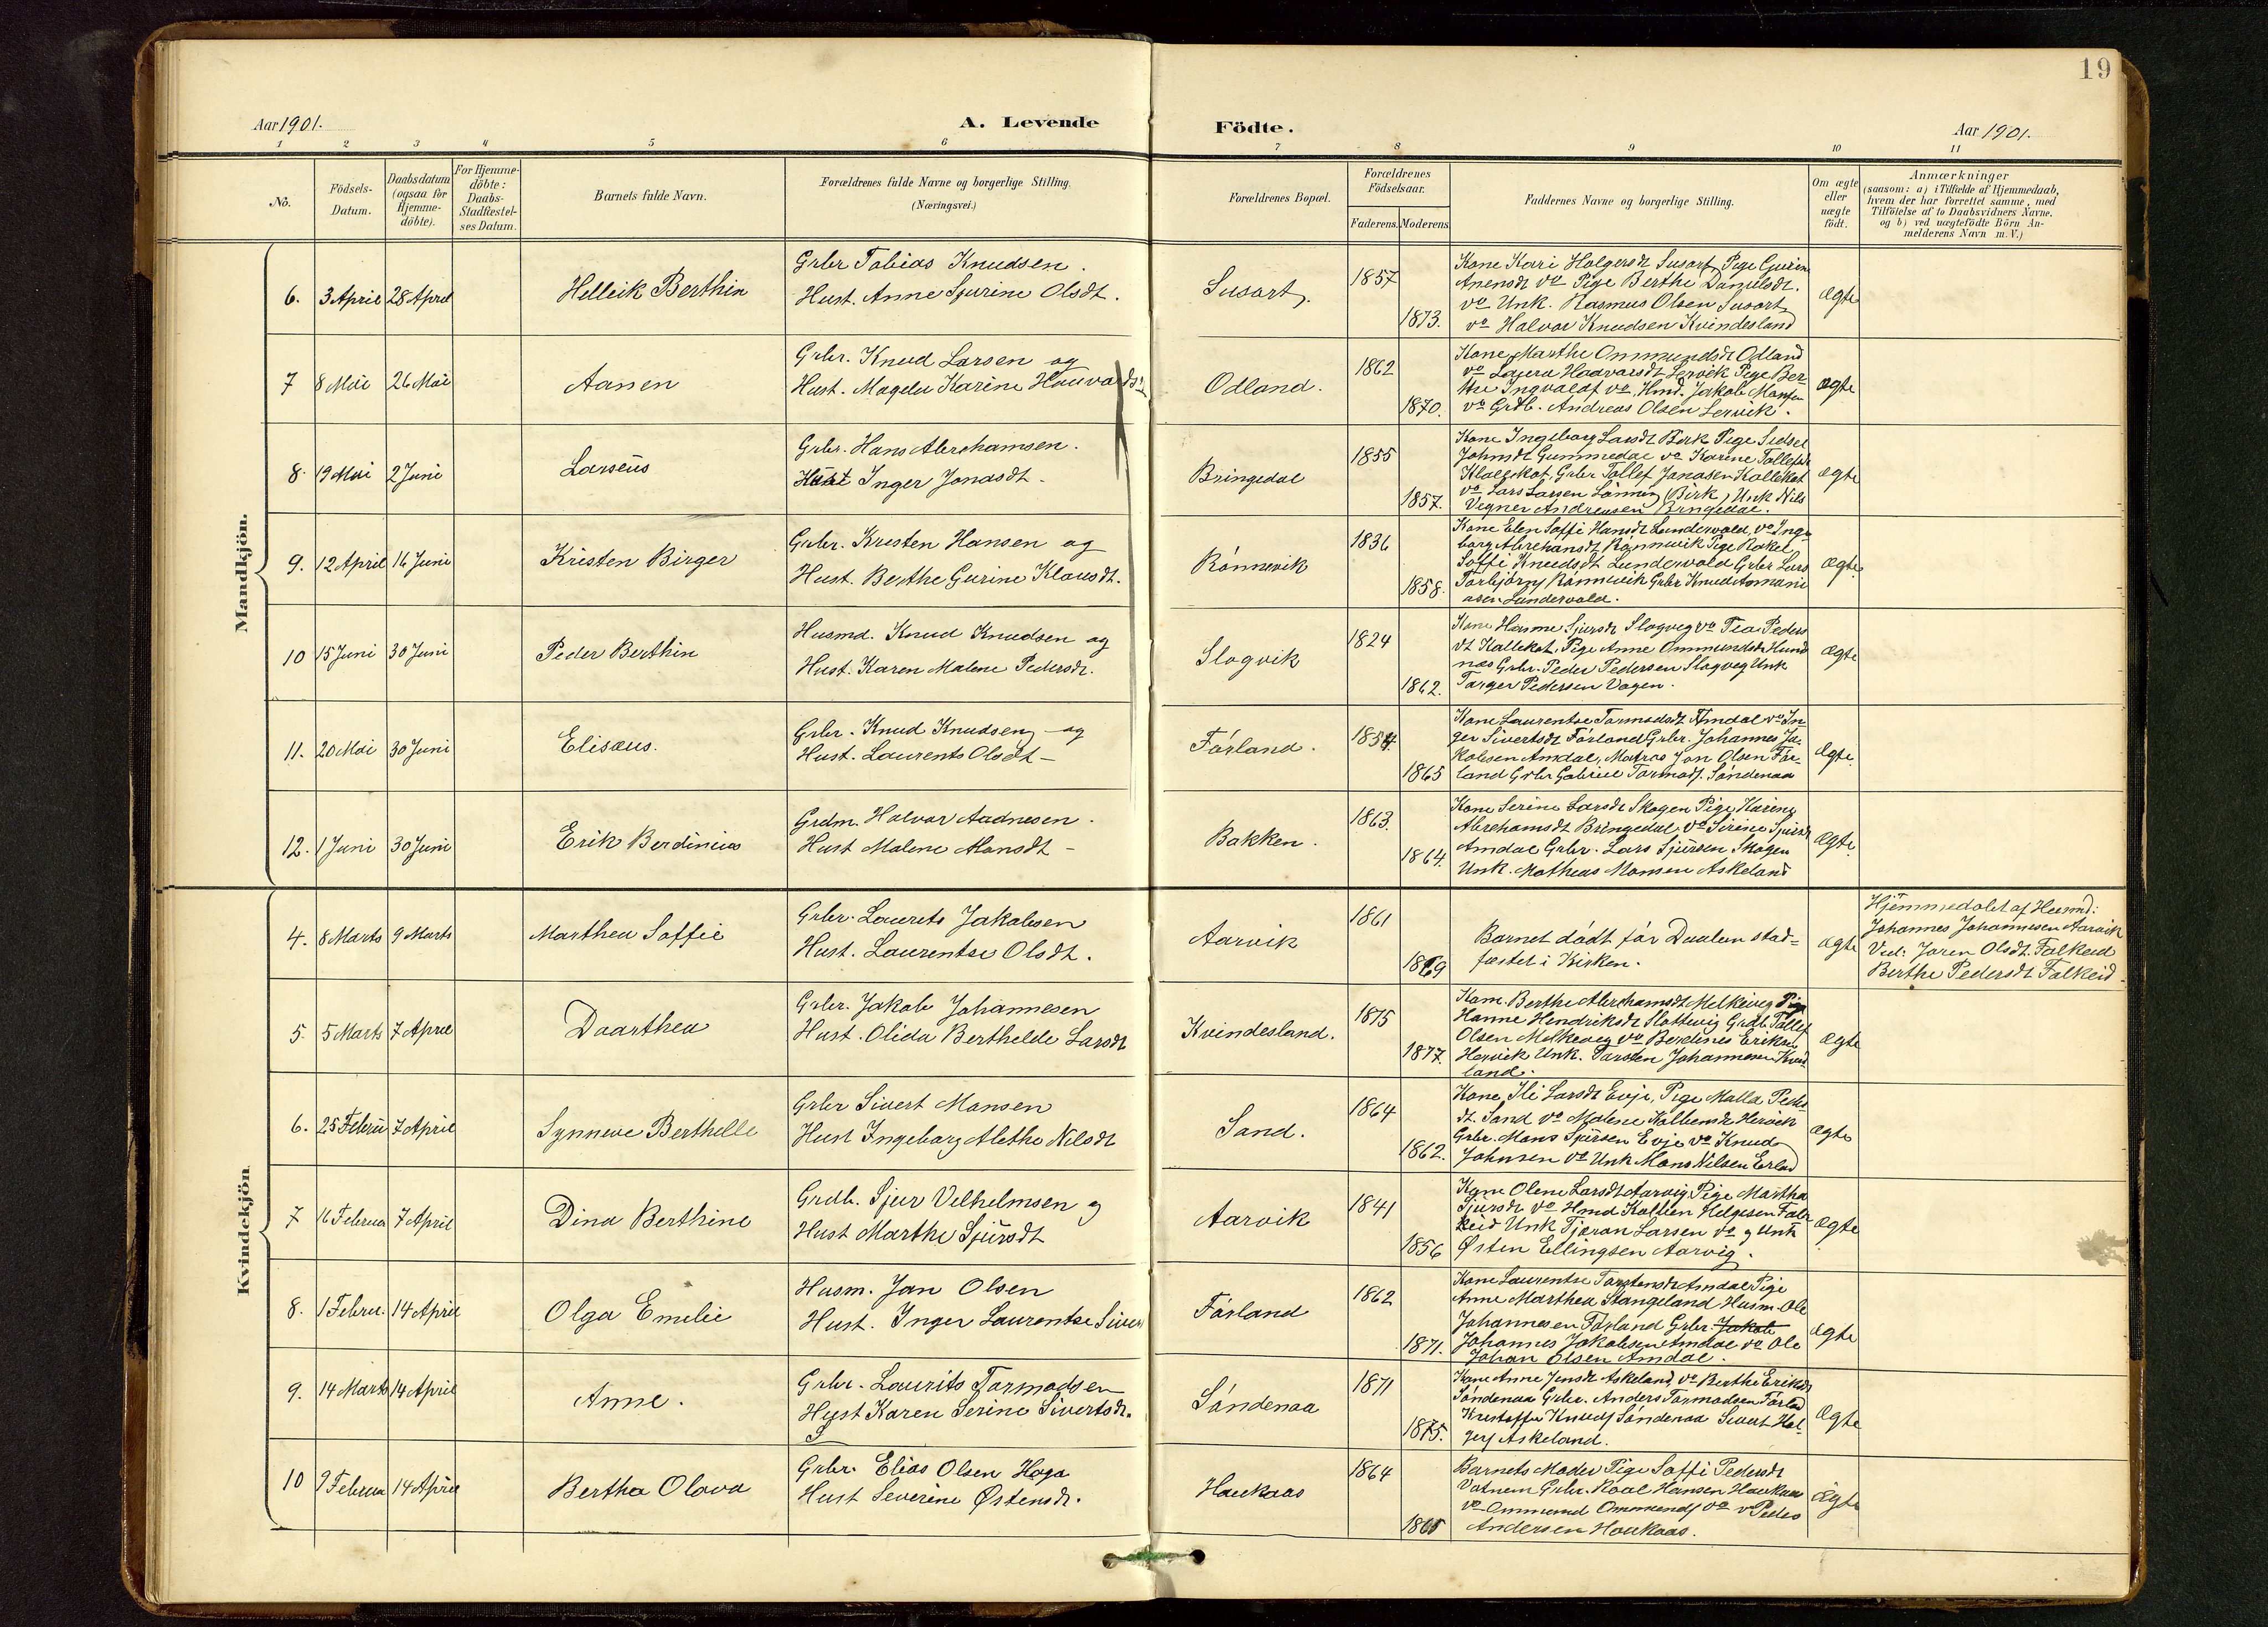 19
Aar 1901.
A. Levende
Födte.
Aar 1901.
1 2 3 4 5 6 7 8 9 10 11
No.
Födsels-
Datum.
Daabsdatum
(ogsaa för
Hjemme-
döbte).
For Hjemme-
döbte:
Daabs-
Stadfæstel-
ses Datum.
Barnets fulde Navn.
Forældrenes fulde Navne og borgerlige Stilling.
(Næringsvei.)
Forældrenes Bopæl.
Forældrenes
Födselsaar.
Faderens. Moderens
Faddernes Navne og borgerlige Stilling.
Om ægte
eller
uægte
födt.
Anmærkninger
(saasom: a) i Tilfælde af Hjemmedaab,
hvem der har forrettet samme, med
Tilföielse af to Daabsvidners Navne.
og b) ved uægtefödte Börn An-
melderens Navn m.V.)
Mandkjön.
6. 3 April 28 April
Helleik Berthin
Grbr Tobias Knudsen.
Hust. Anne Sjurine Olsdt.
Susort,
1857
1873.
Kone Kari Holgersdt Susort, Pige
vo Pige Berthe Danielsdt.
vo Unk. Rasmus Olsen Susort
vo Halvor Knudsen Kvindesland
Ægte
7 8 Mai 26 Mai
Aanen
Grbr. Knud Larsen og
Hust. Magela Karine
Odland.
1862
1870.
Kone Marthe Ommundsdt Odland
Lervik Pige Ber-
the vo Hmd. Jakob
vo Grdb. Andreas Olsen Lervik.
ægte
8. 19 Mai 2 Juni
Larseus
Grbr. Hans Abrahamsen.
Hust Inger Jonasdt.
Bringedal
1855
1857.
Kone Ingeborg Larsdt Birk Pige Sidsel
Johnsdt Gummedal vo Karine
Grbr Tollef Jonasen Kallekot
vo Lars Larsen Birk, Unk Nils
Andreasen Bringedal.
ægte
9. 12 April 16 Juni
Kristen Birger
Grbr. Kristen Hansen og
Hust. Berthe Gurine Klausdt.
Rönnevik
1836
1858.
Kone Elen Soffi Hansdt Lundervold, vo Inge
borg Abrahamsdt Rönnevik Pige Rakel
Soffi Knudsdt Lundervold Grbr Lars
Rönnevik Grbr Knud
asen Lundervold.
Ægte
10 15 Juni 30 Juni
Peder Berthin
Husmd. Knud Knudsen og
Hust. Karen Malene Pedersdt.
Slogvik
1824
1862.
Kone Hanne Sjursdt Slogvig vo Tea Peders
dt Kallekot, Pige Anne Ommundsdt Hund
næs Grbr. Peder Pedersen Slogveg Unk
Torger Pedersen Vagen.
Ægte
11. 20 Mai 30 Juni
Elisæus.
Grbr. Knud Knudsen og
Hust. Laurents Olsdt
Förland.
1854
1865
Kone Laurentse Tormodsdt Amdal vo In-
ger Sivertsdt Förland Grbr. Johannes Ja-
kobsen Amdal, Matros Jon Olsen För-
land Grbr Gabriel Söndenaa
Ægte
12. 1 Juni 30 Juni
Erik Berdinius
Grdm. Halvor Aadnesen.
Hust Malene Mansdt
Bakken.
1863.
1864.
Kone Serine Larsdt Skogen Pige Karine
Abrahamsdt Bringedal, vo Sirine
Amdal Grbr. Lars Sjursen Skogen
Unk. Matheas Monsen Askeland
Ægte.
Kvindekjön.
4. 8 Marts 9 Marts
Marthea Soffie
Grbr. Laurits Jakobsen
Hust. Laurentse Olsdt.
Aarvik
1861
1869
Barnet dödt för Daaben stad-
fæstet i Kirken.
ægte
Hjemmedöbt af Husmd:
Johannes Johannesen Aarvik
Ved: Joren Olsdt Falkeid
Berthe Pedersdt Falkeid
5. 5 Marts 7 April
Daarthea
Grbr. Jakob Johannesen
Hust. Olida Berthelde Larsdt
Kvindesland.
1875
1877.
Kone. Berthe Abrahamsdt Melkeveg Pige
Hanne Hendriksdt Slottevig Grdb. Tollef
Olsen Melkeveg vo Berdines Eriksen
Hervik Unk. Torsten Johannesen Kvind
land.
Ægte
6. 25 Februa 7 April
Synneve Berthelle
Grbr Sivert Monsen
Hust Ingeborg Alethe Nilsdt
Sand.
1864
1862.
Kone Larsdt Evje, Pige Malla Peder
dt. Sand vo Malene Hervik
Grbr. Mons Sjursen Evje vo Knud
Johnsen vo Unk Mons Nilsen
Ægte
7 16 Februa 7 April
Dina Berthine
Grdb. Sjur Velhelmsen og
Hust Marthe Sjursdt
Aarvik
1841
1856
Kone Olene Larsdt Aarvig, Pige Martha
Sjursdt vo Hmd Kolbein Helgesen Fal-
keid Unk Larsen vo og Unk
Østen Ellingsen Aarvig.
Ægte
8. 1 Februa. 14 April
Olga Emilie
Husm. Jon Olsen
Hust. Inger Laurentse
Förland
1862
1871.
Kone Laurentse Amdal Pige
Anne Marthea Stangeland Husm. Ole
Johannesen Förland Grbr. Jakob
Johannes Jakobsen Amdal vo Ole
Johan Olsen Amdal.
Ægte
9. 14 Marts 14 April
Anne.
Grbr. Laurits Tormodsen
Hust Karen Serine Sivertsdt.
Söndenaa
1871
1875.
Kone Anne Jensdt Askeland, vo Berthe Eriksdt
Söndenaa Grbr. Anders Tormodsen
Söndenaa Sivert Hol-
Askeland.
Ægte
10 9 Februa 14 April
Bertha Olava
Grbr. Elias Olsen Haga
Hust Severine Østensdt.
Haukaas
1864
Barnets Moder Pige Soffi Pedersdt
Vatnem Grbr. Hansen Haukaas
vo Ommund vo Peder
Andersen Haukaas.
Ægte